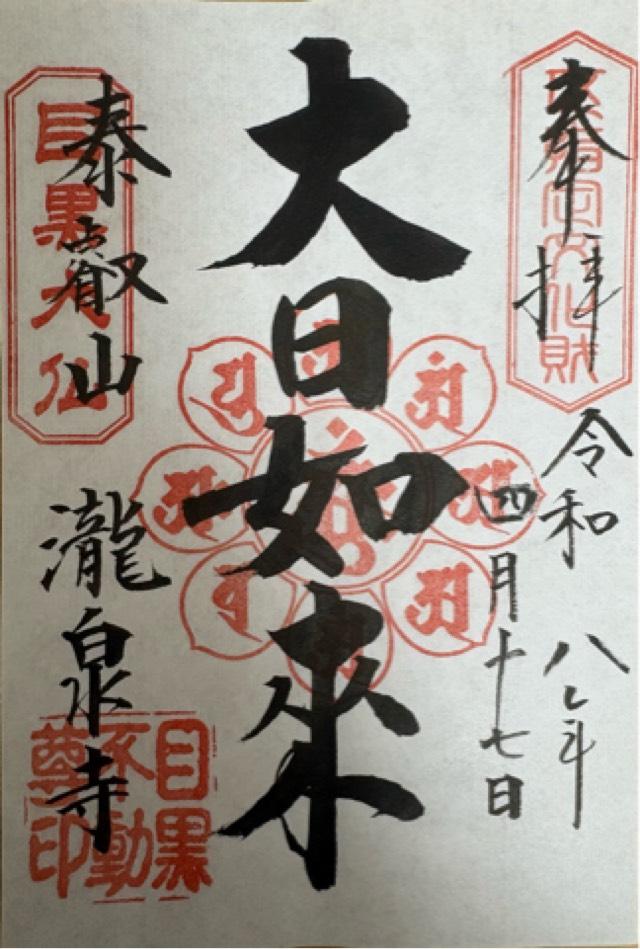 奉拝
区指定文化財
令和八年
四月十七日
大日如來
泰叡山
瀧泉寺
目黒大仏
目黒
不動
尊印